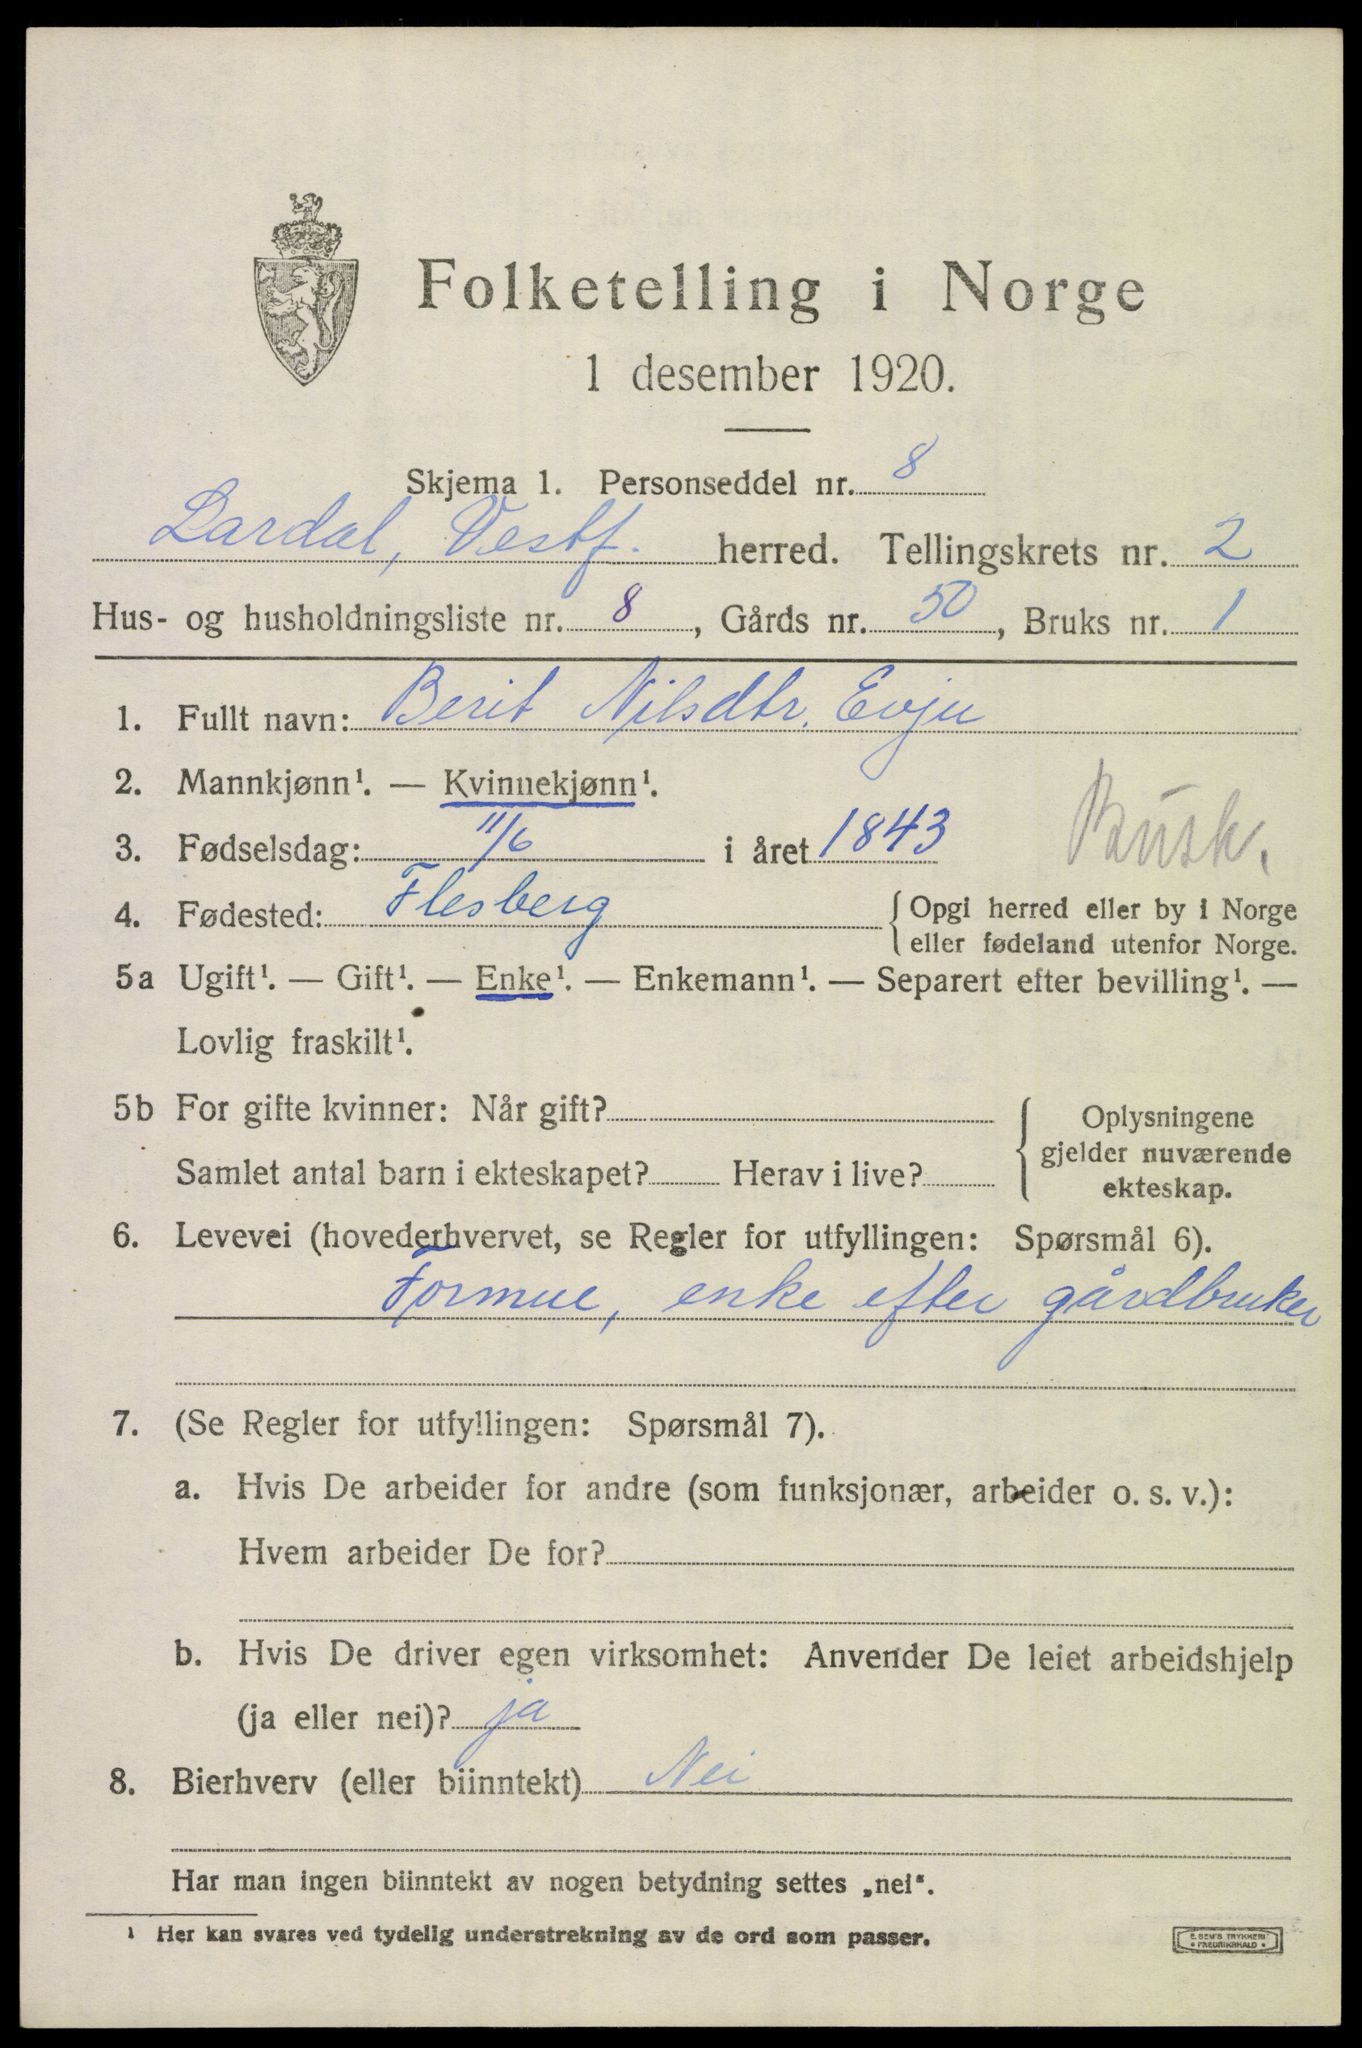 Folketelling i Norge
1 desember 1920.
Skjema 1. Personseddel nr. 8
Lardal, Vestf. herred. Tellingskrets nr. 2
Hus- og husholdningsliste nr. 8, Gårds nr. 50, Bruks nr. 1
1. Fullt navn: Berit Nilsdtr. Evju
2. Mannkjønn¹. — Kvinnekjønn¹.
3. Fødselsdag: 11/6 i året 1843
Busk.
4. Fødested: Flesberg { Opgi herred eller by i Norge
eller fødeland utenfor Norge.
5a Ugift¹. — Gift¹. — Enke¹. — Enkemann¹. — Separert efter bevilling¹. —
Lovlig fraskilt¹.
5b For gifte kvinner: Når gift?
Samlet antal barn i ekteskapet? Herav i live?
{ Oplysningene
gjelder nuværende
ekteskap.
6. Levevei (hovederhvervet, se Regler for utfyllingen: Spørsmål 6).
Formue, enke efter gårdbruker
7. (Se Regler for utfyllingen: Spørsmål 7).
a. Hvis De arbeider for andre (som funksjonær, arbeider o. s. v.):
Hvem arbeider De for?
b. Hvis De driver egen virksomhet: Anvender De leiet arbeidshjelp
(ja eller nei)? ja
8. Bierhverv (eller biinntekt) Nei
Har man ingen biinntekt av nogen betydning settes „nei".
¹ Her kan svares ved tydelig understrekning av de ord som passer.
E. SEM'S TRYKKERI
• FREDRIKSHALD •